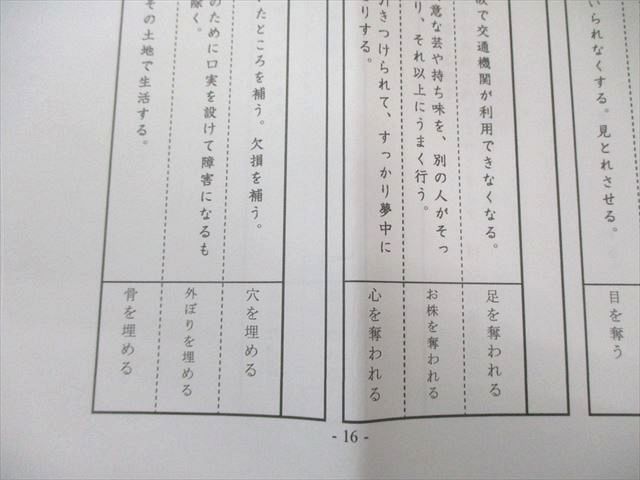 いられなくする。見とれさせる。
目を奪う
で交通機関が利用できなくなる。
足を奪われる
意な芸や持ち味を、別の人がそっ
り、それ以上にうまく行う。
お株を奪われる
引きつけられて、すっかり夢中に
りする。
心を奪われる
たところを補う。欠損を補う。
穴を埋める
のために口実を設けて障害になるも
除く。
外ぼりを埋める
その土地で生活する。
骨を埋める
- 16 -